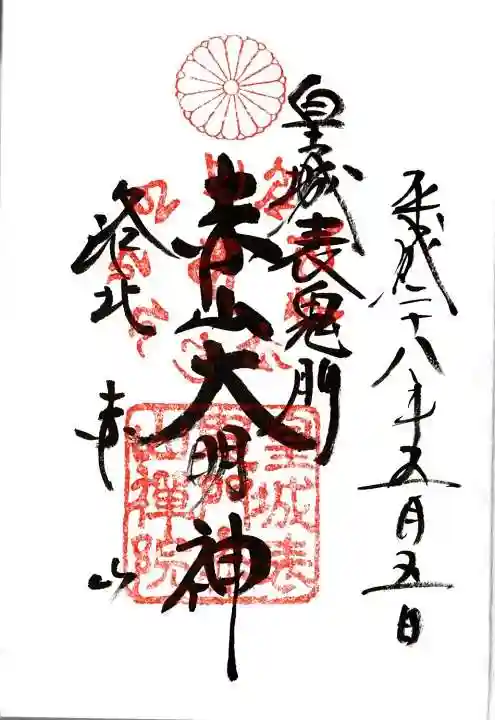 平成二十八年五月五日
皇城表鬼門
赤山大明神
洛北 赤山
皇城表
山禪院